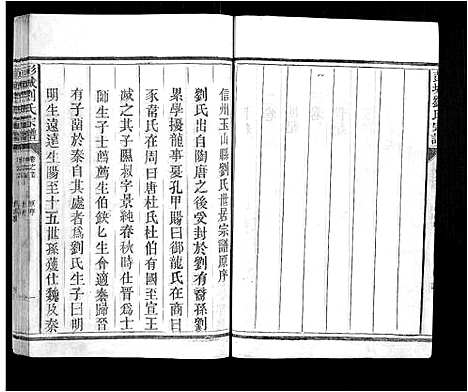 彭城劉氏宗譜
信州玉山縣劉氏世居宗譜原序
劉氏出自陶唐之後受封於劉有裔孫劉
累學擾龍事夏孔甲賜曰御龍氏在商曰
豕韋氏在周曰唐杜氏杜伯有國至宣王
滅之其子隰叔字景純春秋時仕晉為士
師生子士蔿蔿生伯歆匕生會適秦歸晉
有子留於秦自其處者為劉氏生子曰明
明生遠遠生陽至十五世孫獲仕魏及秦
彭城劉氏宗譜